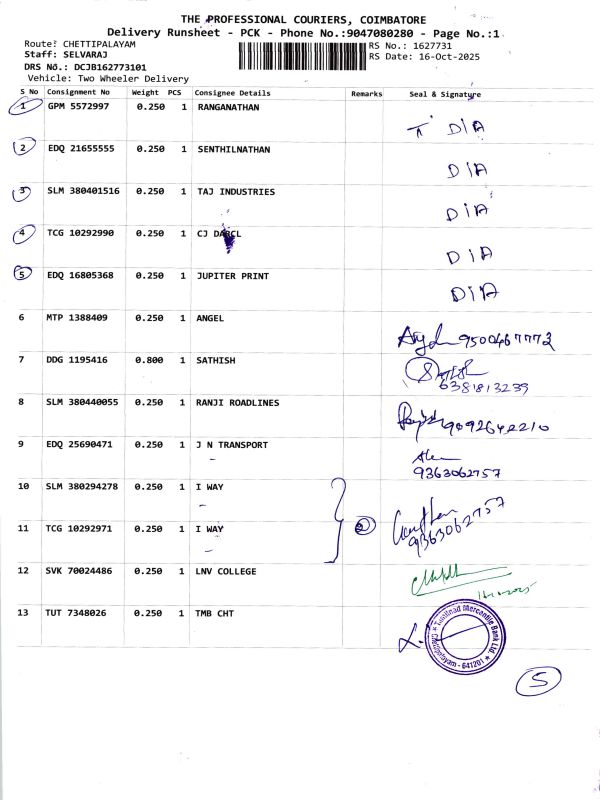 THE PROFESSIONAL COURIERS, COIMBATORE
Delivery Runsheet - PCK - Phone No.:9047080280 - Page No.:1
Route: CHETTIPALAYAM
Staff: SELVARAJ
DRS No.: DCJB162773101
Vehicle: Two Wheeler Delivery
RS No.: 1627731
RS Date: 16-Oct-2025
S No Consignment No Weight PCS Consignee Details Remarks Seal & Signature
1 GPM 5572997 0.250 1 RANGANATHAN DIA
2 EDQ 21655555 0.250 1 SENTHILNATHAN DIA
3 SLM 380401516 0.250 1 TAJ INDUSTRIES DIA
4 TCG 10292990 0.250 1 CJ DARCL DIA
5 EDQ 16805368 0.250 1 JUPITER PRINT DIA
6 MTP 1388409 0.250 1 ANGEL 9500467773
7 DDG 1195416 0.800 1 SATHISH 6381813239
8 SLM 380440055 0.250 1 RANJI ROADLINES 9092642210
9 EDQ 25690471 0.250 1 J N TRANSPORT 9363062757
10 SLM 380294278 0.250 1 I WAY
11 TCG 10292971 0.250 1 I WAY 9363062757
12 SVK 70024486 0.250 1 LNV COLLEGE
13 TUT 7348026 0.250 1 TMB CHT
Tamilnad Mercantile Bank Ltd.
Chettipalayam - 641201
5